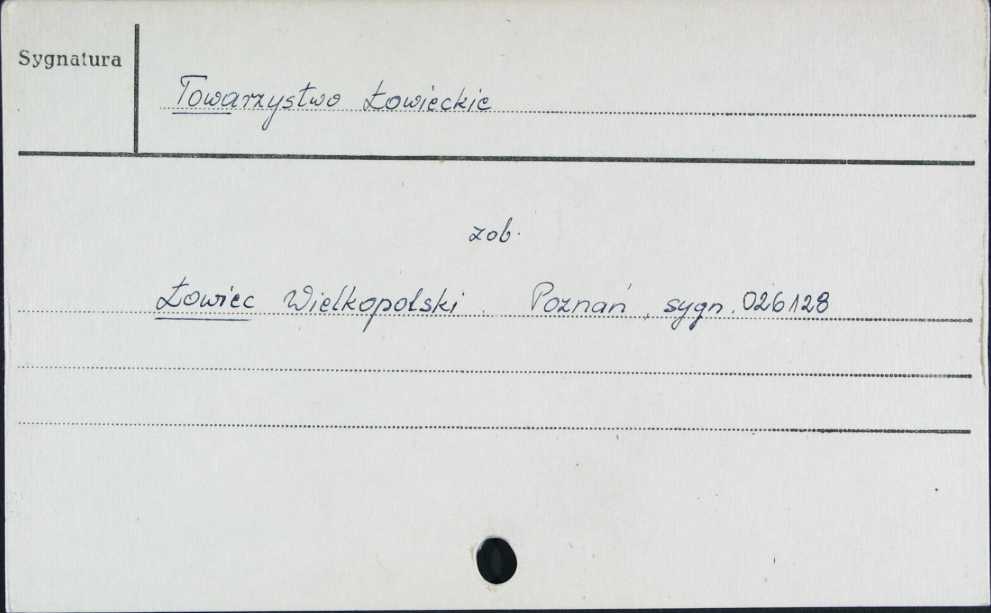 Sygnatura
Towarzystwo Łowieckie
zob.
Łowiec Wielkopolski. Poznań, sygn. 026128